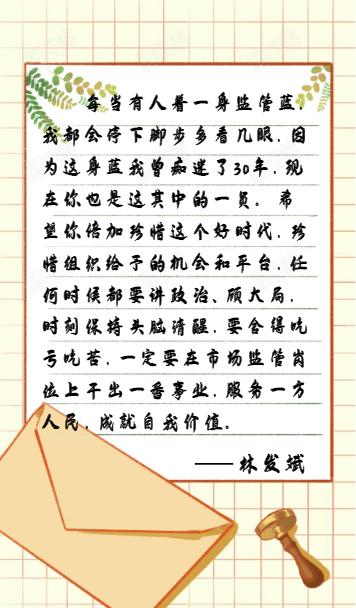 每当有人着一身监管蓝，
我都会停下脚步多看几眼，因
为这身蓝我曾痴迷了30年，现
在你也是这其中的一员。希
望你倍加珍惜这个好时代，珍
惜组织给予的机会和平台，任
何时候都要讲政治、顾大局，
时刻保持头脑清醒，要舍得吃
亏吃苦，一定要在市场监管岗
位上干出一番事业，服务一方
人民，成就自我价值。
——林发斌